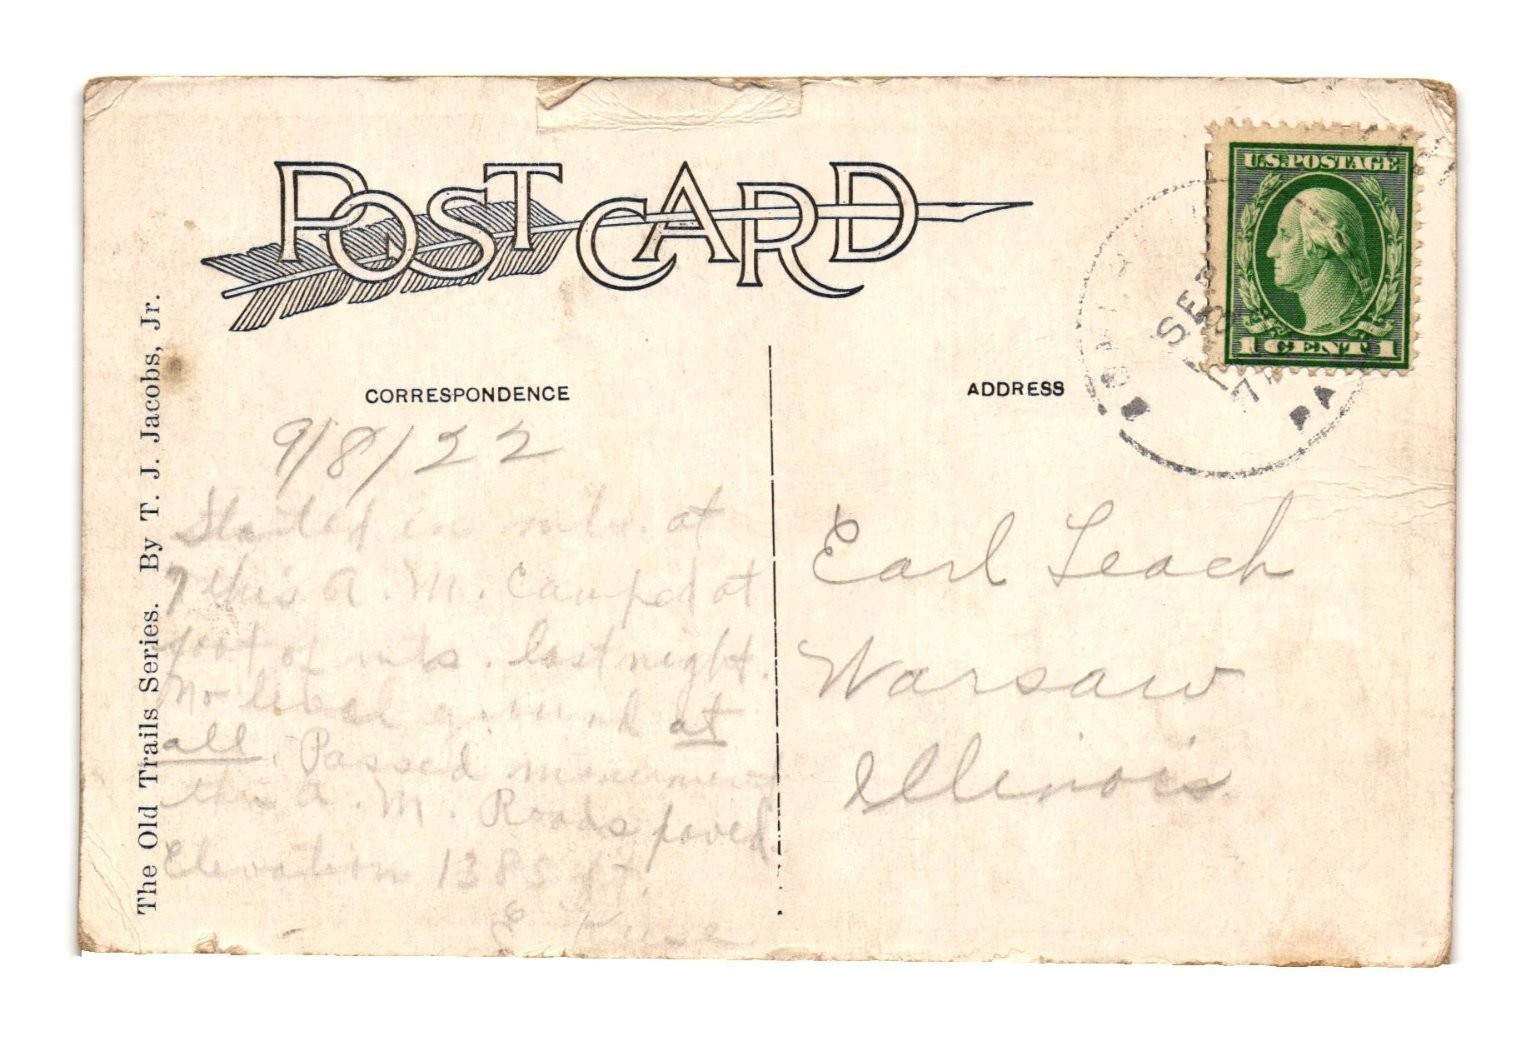 POST CARD
U.S. POSTAGE
1 CENT 1
SEP
8
7
PA
CORRESPONDENCE
ADDRESS
The Old Trails Series. By T. J. Jacobs, Jr.
9/8/22
Started in mts. at
7 this A.M. Camped at
foot of mts. last night.
No level ground at
all. Passed monument
this A.M. Roads paved
Elevation 1385 ft.
Earl Leach
Warsaw
Illinois